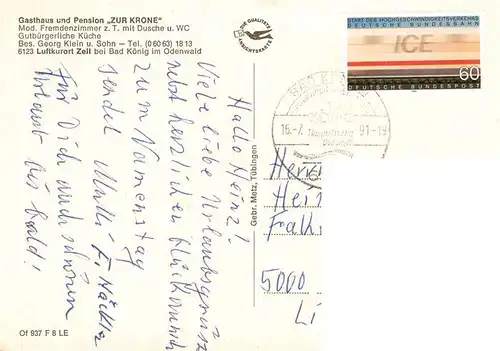 Gasthaus und Pension „ZUR KRONE"
Mod. Fremdenzimmer z. T. mit Dusche u. WC
Gutbürgerliche Küche
Bes. Georg Klein u. Sohn – Tel. (0 60 63) 18 13
6123 Luftkurort Zell bei Bad König im Odenwald
DIE QUALITÄTS
ANSICHTSKARTE
START DES HOCHGESCHWINDIGKEITSVERKEHRS
DEUTSCHE BUNDESBAHN
ICE
60
DEUTSCHE BUNDESPOST
BAD
16.-7. 91-19
Hallo Heinz!
Viele liebe Urlaubsgrüsse
nebst herzlichen Glückwunsch
zum Namenstag
sendet
Für Dich auch schönen
Urlaub bis bald!
Gebr. Metz, Tübingen
Herrn
Hei
Falk
5000
Li
Of 937 F 8 LE